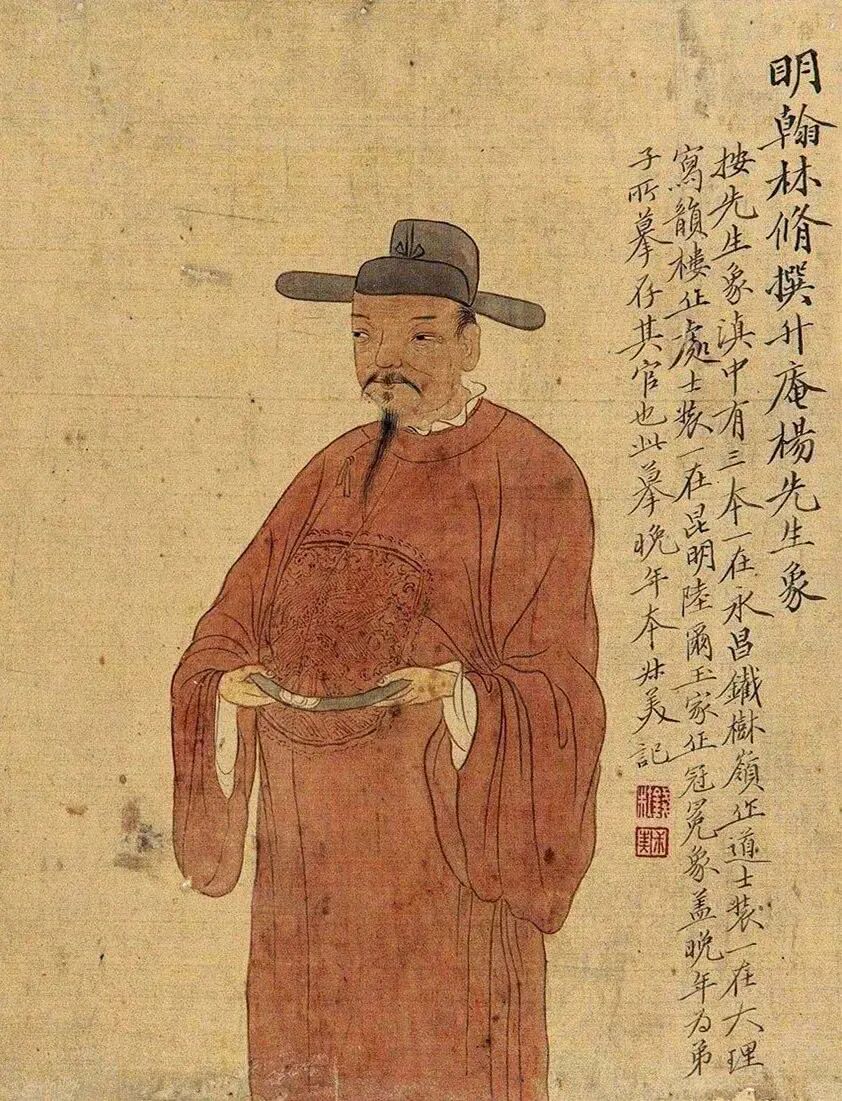 明翰林脩撰升庵楊先生象
按先生象滇中有三本一在永昌鐵樹嶺作道士裝一在大理
寫韻樓作處士裝一在昆明陸爾玉家作冠冕象蓋晚年为弟
子所摹存其官也此摹晚年本尗美記
錢杜
尗美